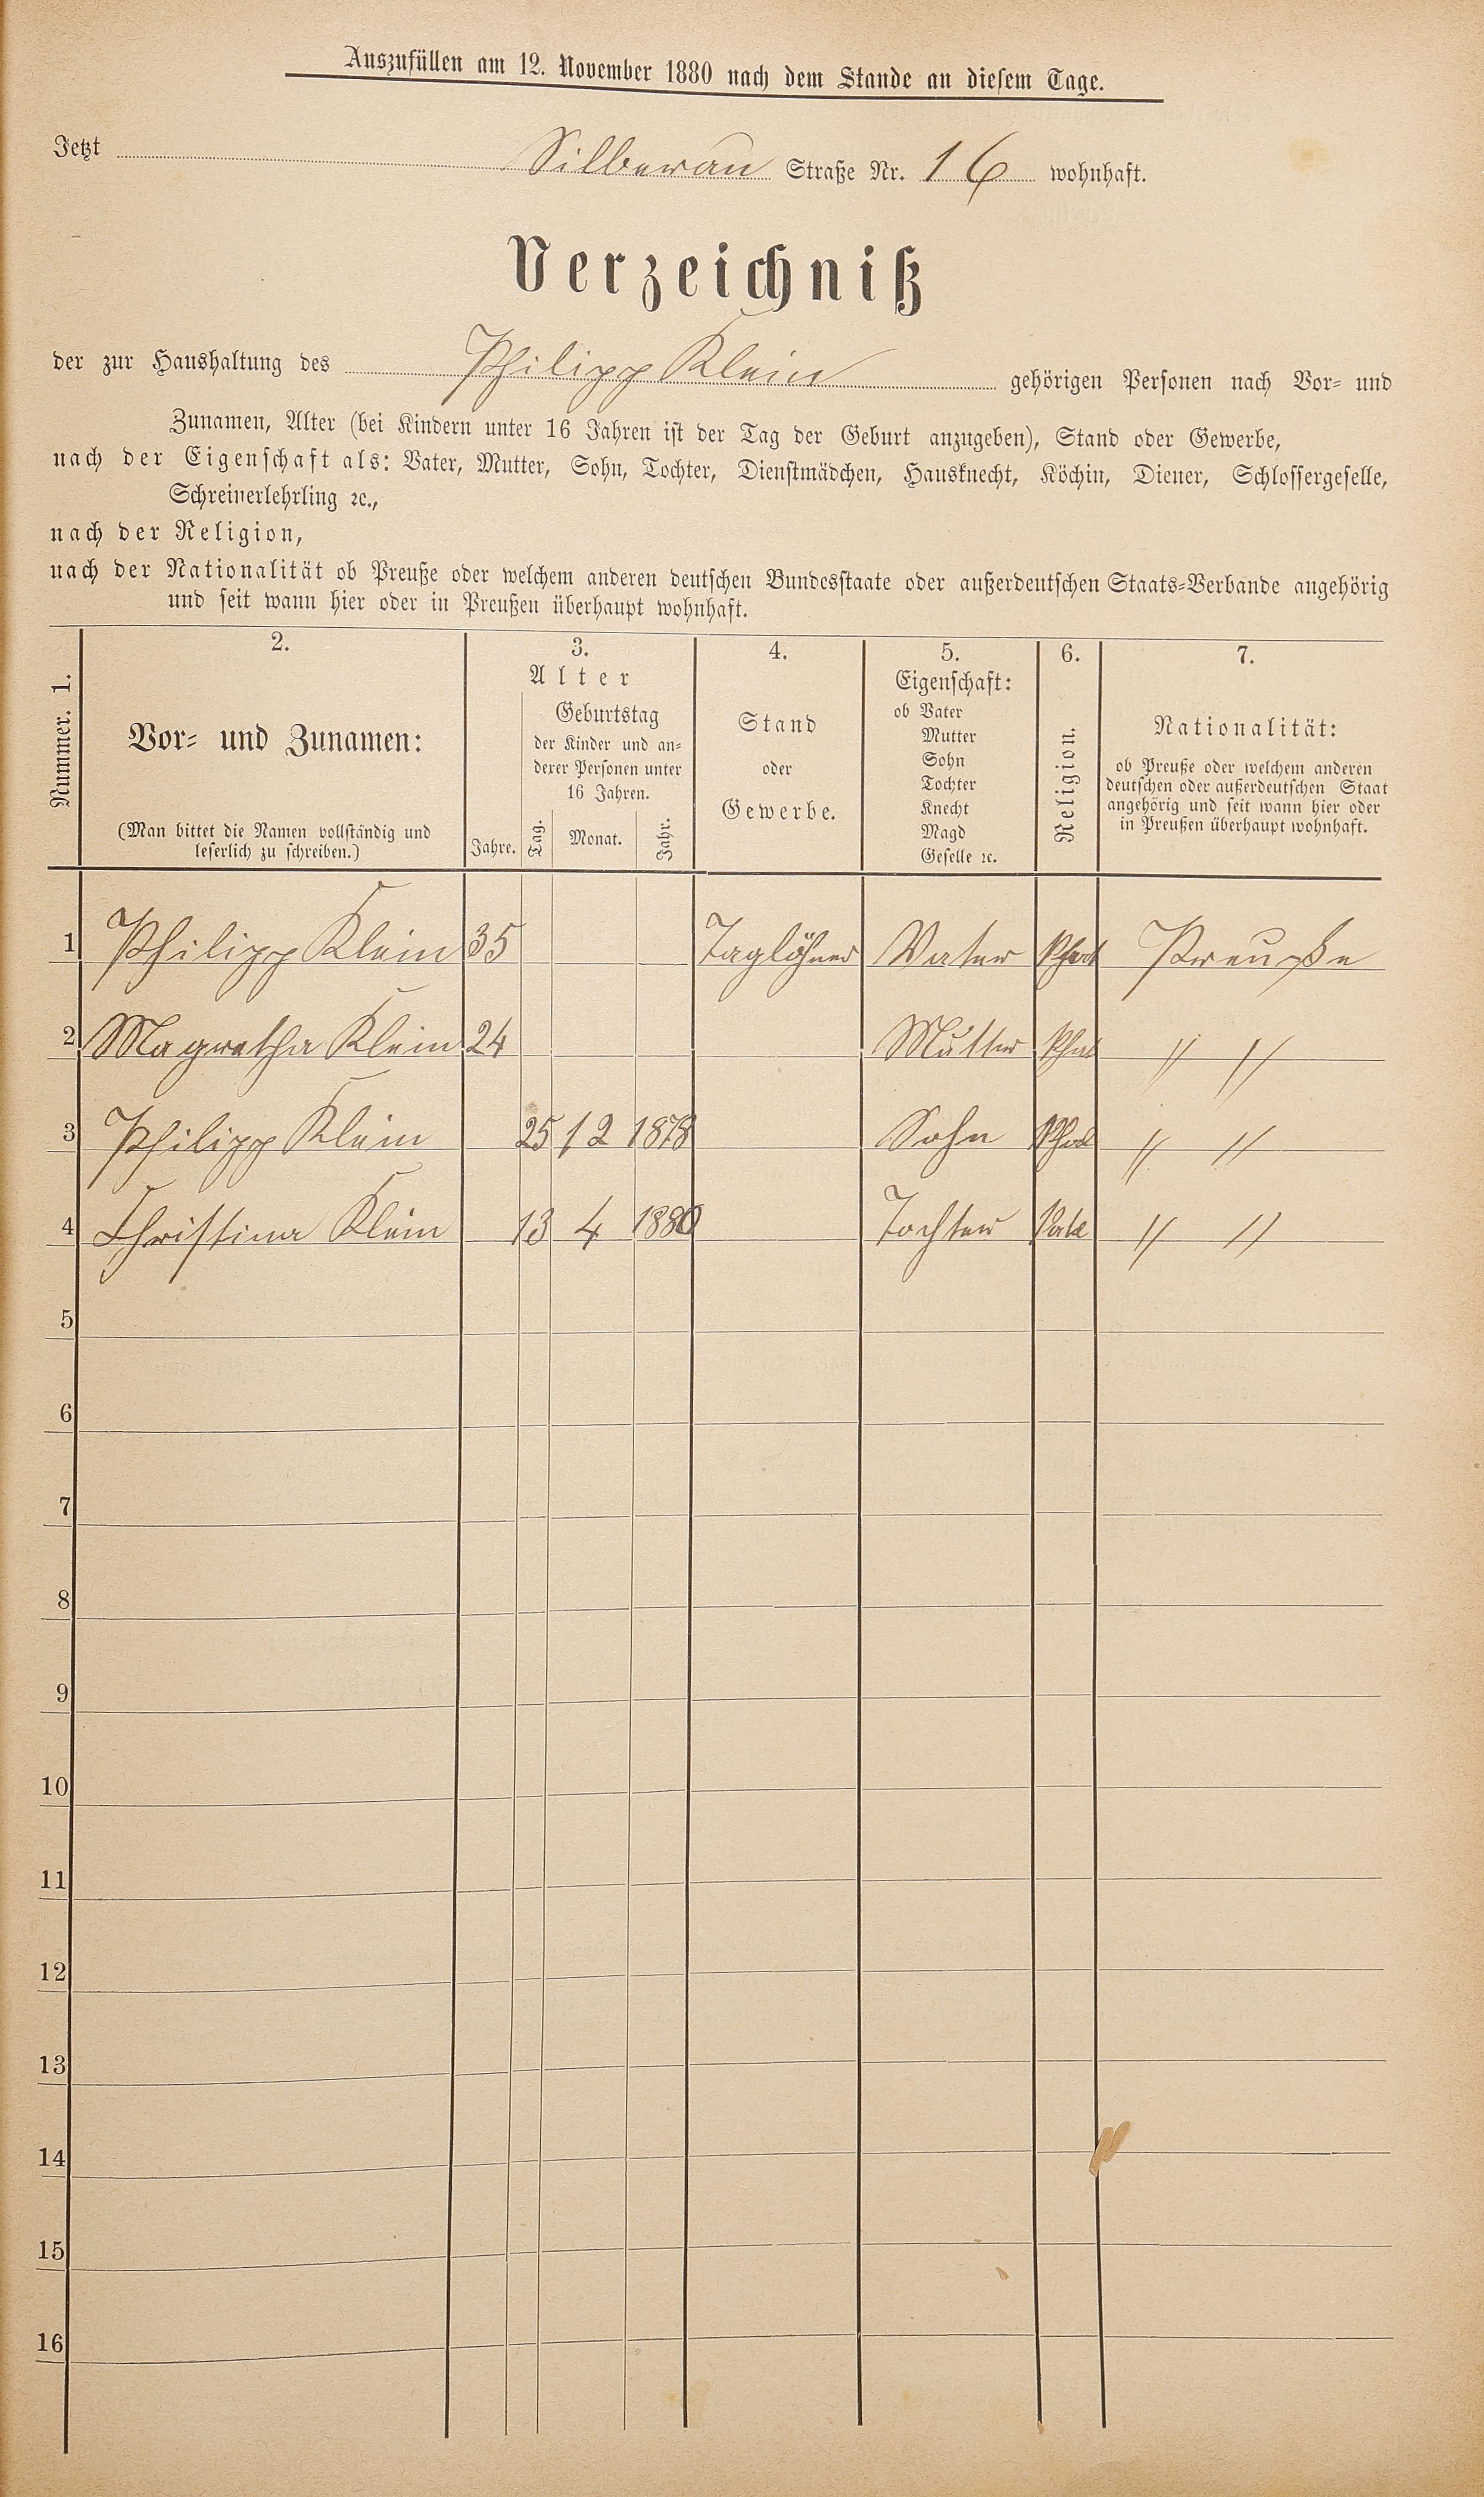 Auszufüllen am 12. November 1880 nach dem Stande an diesem Tage.
Jetzt Silberau Straße Nr. 16 wohnhaft.
Verzeichniß
der zur Haushaltung des Philipp Klein gehörigen Personen nach Vor- und
Zunamen, Alter (bei Kindern unter 16 Jahren ist der Tag der Geburt anzugeben), Stand oder Gewerbe,
nach der Eigenschaft als: Vater, Mutter, Sohn, Tochter, Dienstmädchen, Hausknecht, Köchin, Diener, Schlossergeselle,
Schreinerlehrling ꝛc.,
nach der Religion,
nach der Nationalität ob Preuße oder welchem anderen deutschen Bundesstaate oder außerdeutschen Staats-Verbande angehörig
und seit wann hier oder in Preußen überhaupt wohnhaft.
Nummer. 1.
2.
Vor- und Zunamen:
(Man bittet die Namen vollständig und
leserlich zu schreiben.)
3.
Alter
Geburtstag
der Kinder und an-
derer Personen unter
16 Jahren.
Jahre. Tag. Monat. Jahr.
4.
Stand
oder
Gewerbe.
5.
Eigenschaft:
ob Vater
Mutter
Sohn
Tochter
Knecht
Magd
Geselle ꝛc.
6.
Religion.
7.
Nationalität:
ob Preuße oder welchem anderen
deutschen oder außerdeutschen Staat
angehörig und seit wann hier oder
in Preußen überhaupt wohnhaft.
1 Philipp Klein 35 Taglöhner Vater Preuße
2 Magretha Klein 24 Mutter " "
3 Philipp Klein 25 12 1878 Sohn " "
4 Christina Klein 13 4 1880 Tochter " "
5
6
7
8
9
10
11
12
13
14
15
16